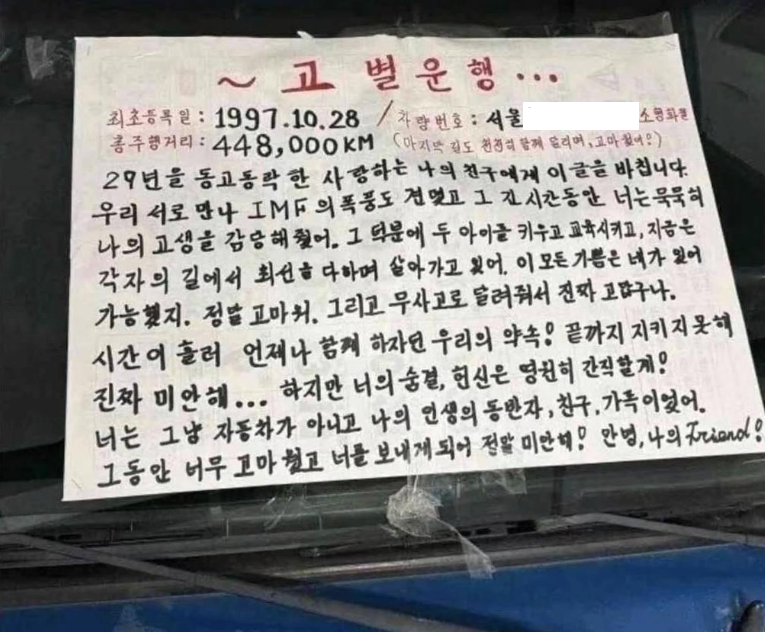 ~ 고 별 운 행 ...
최초등록일 : 1997.10.28 / 차량번호 : 서울 소형화물
총주행거리 : 448,000KM (마지막 길도 천천히 함께 달리며, 고마웠어?)
29년을 동고동락 한 사랑하는 나의 친구에게 이 글을 바칩니다.
우리 서로 만나 IMF의 폭풍도 견뎠고 그 긴 시간동안 너는 묵묵히
나의 고생을 감당해줬어. 그 덕분에 두 아이를 키우고 교육시키고, 지금은
각자의 길에서 최선을 다하며 살아가고 있어. 이 모든 기쁨은 네가 있어
가능했지. 정말 고마워. 그리고 무사고로 달려줘서 진짜 고맙구나.
시간이 흘러 언제나 함께 하자던 우리의 약속! 끝까지 지키지 못해
진짜 미안해... 하지만 너의 숨결, 헌신은 영원히 간직할게!
너는 그냥 자동차가 아니고 나의 인생의 동반자, 친구, 가족이었어.
그동안 너무 고마웠고 너를 보내게 되어 정말 미안해! 안녕, 나의 Friend!